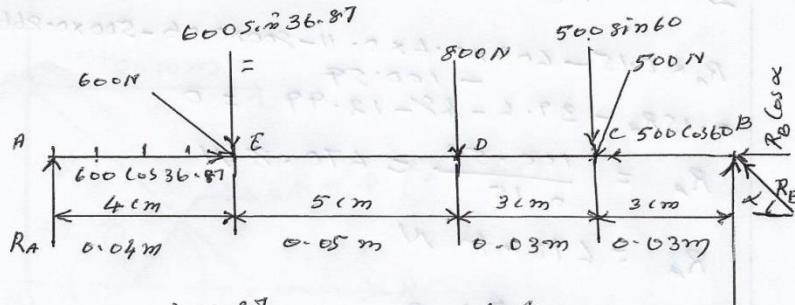 600 sin 36.87
500 sin 60
800N
500N
600N
=
A
E
D
C
500 cos 60
B
RB cos α
600 cos 36.87
α
RB
4 cm
5 cm
3 cm
3 cm
RA
0.04m
0.05 m
0.03m
0.03m